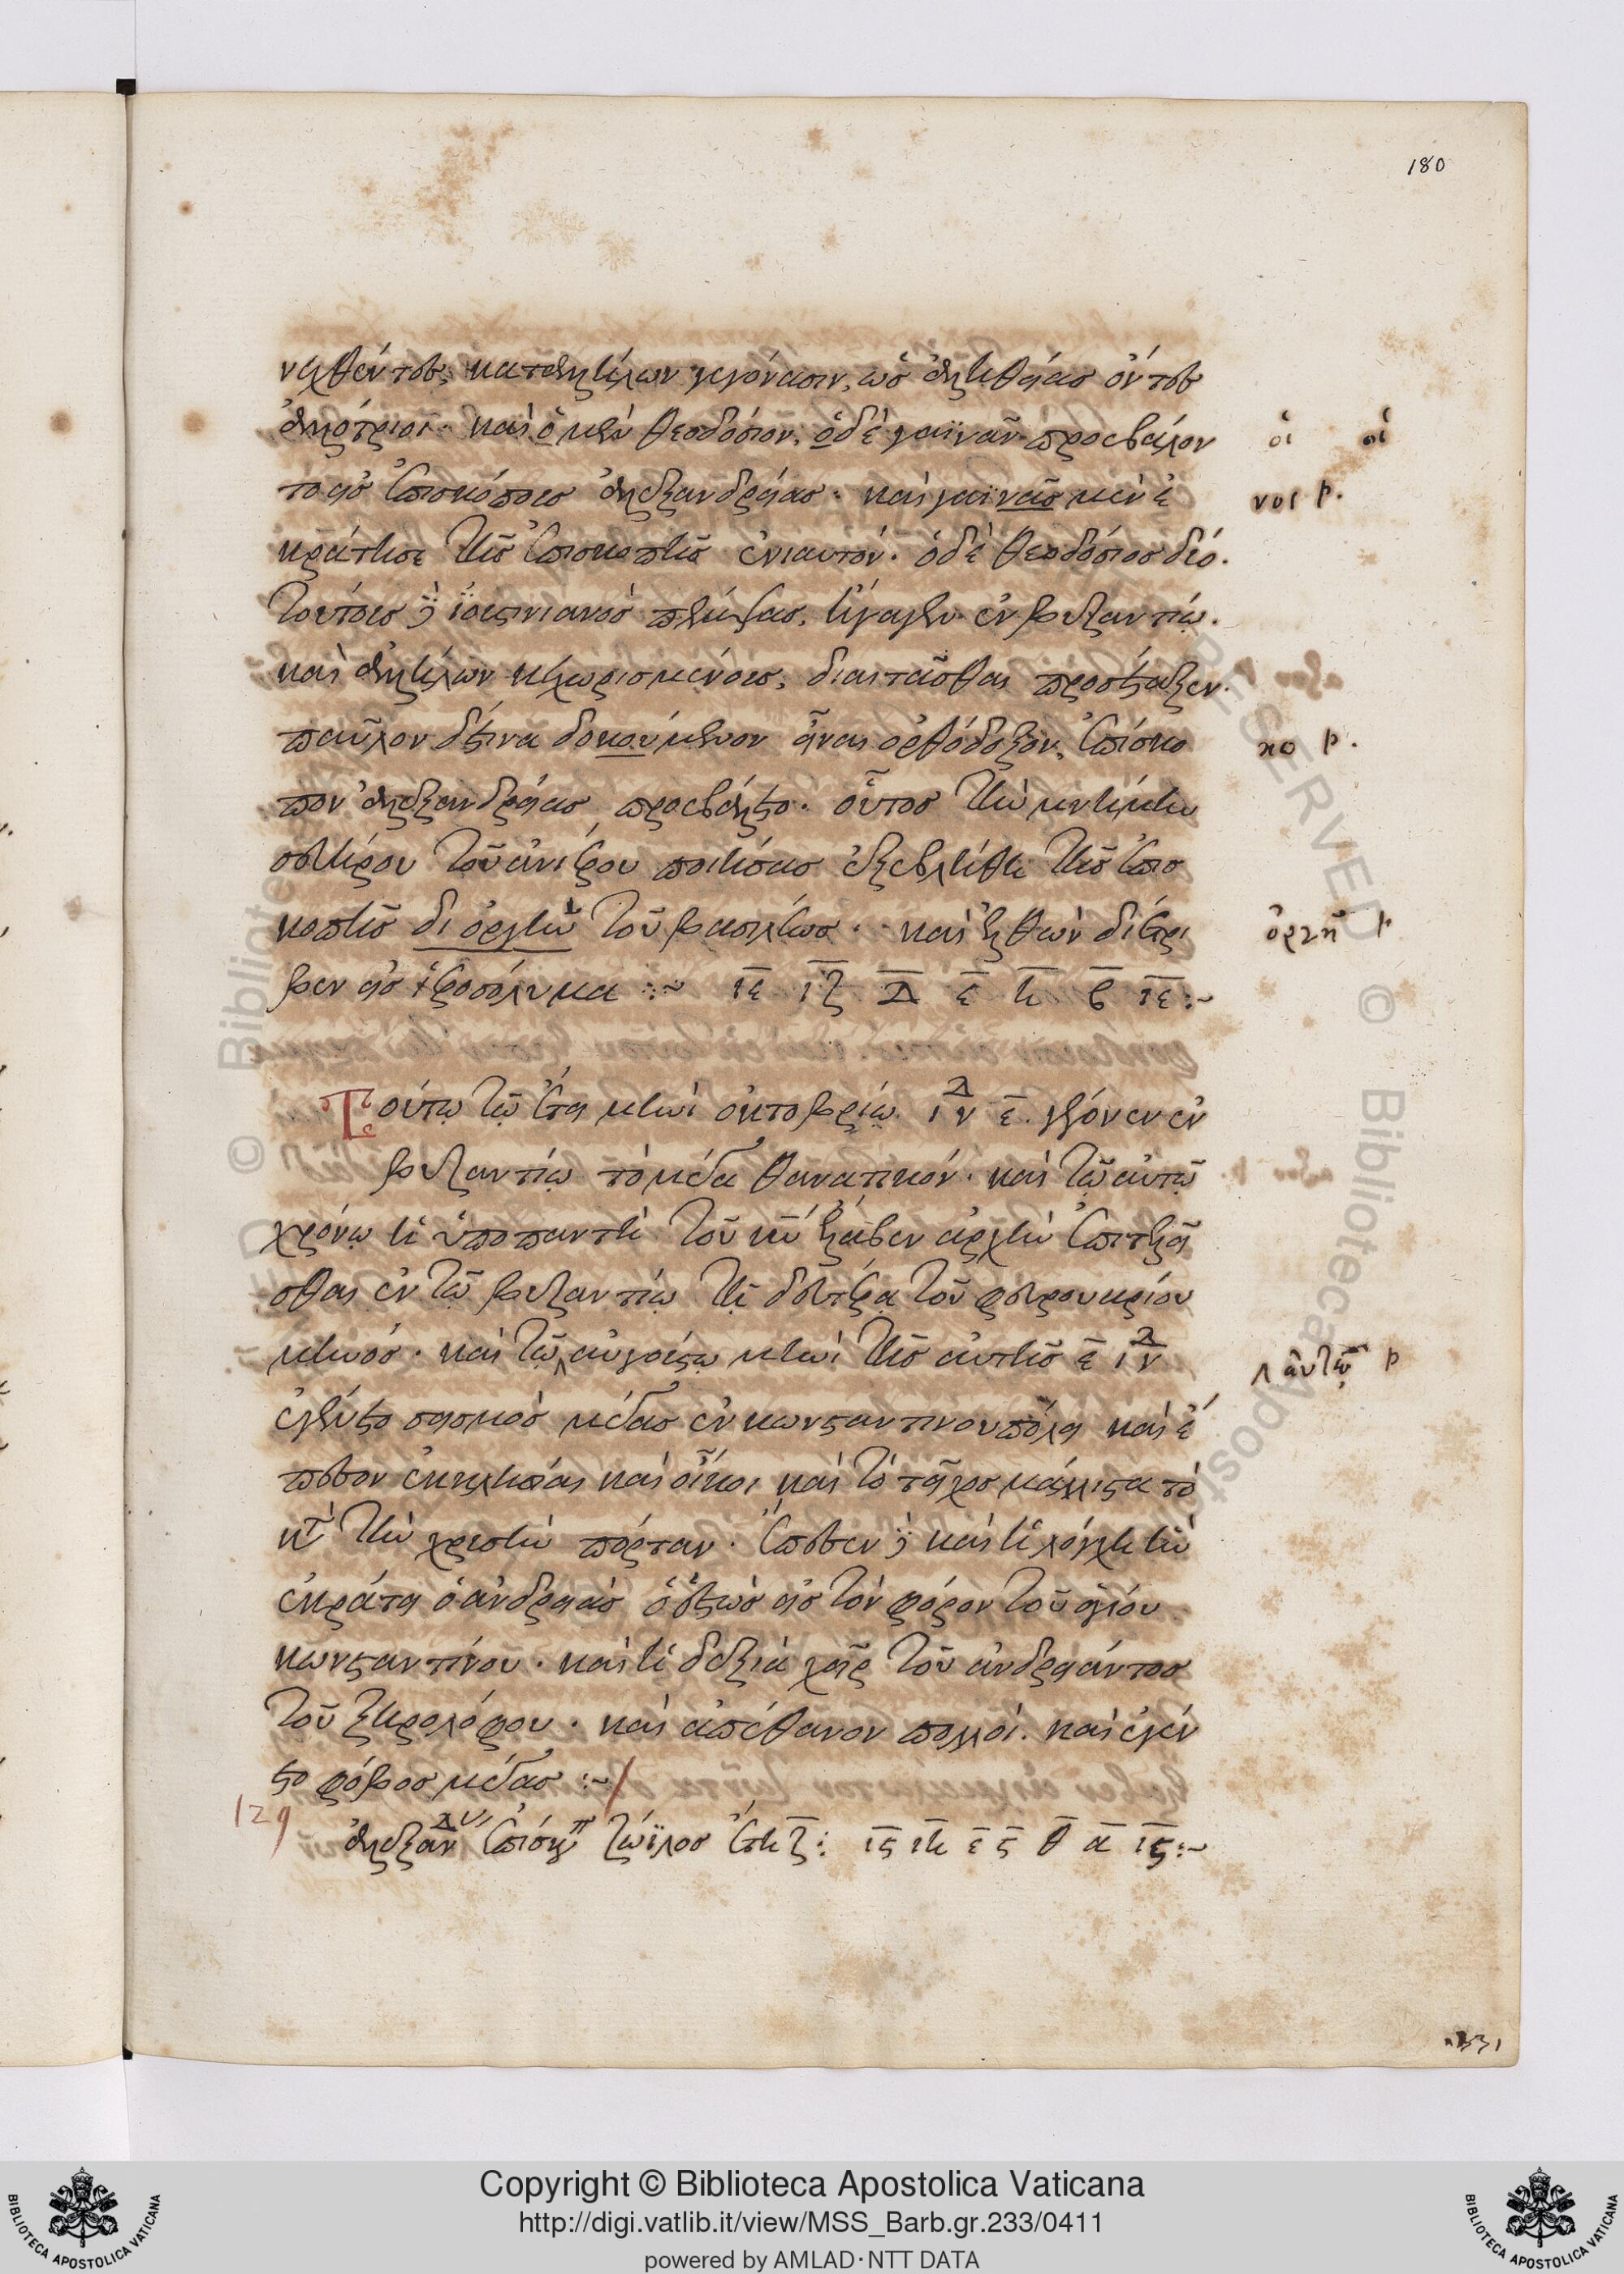 180
νεχθέντες, κατ' ἀλλήλων γεγόνασιν, ὡς ἀληθείας ὄντες
ἀλλότριοι· καὶ ὁ μὲν θεοδόσιον, ὁ δὲ γαϊνᾶν προεβάλον
οἱ οἱ
το εἰς ἐπισκόπους ἀλεξανδρείας· καὶ γαϊνᾶς μὲν ἐ
νοι p.
κράτησε τῆς ἐπισκοπῆς ἐνιαυτόν· ὁ δὲ θεοδόσιος δύο·
τούτους δὲ ϊουστινιανὸς πέμψας, ἤγαγεν ἐν βυζαντίῳ·
καὶ ἀλλήλων κεχωρισμένους, διαιτᾶσθαι προσέταξεν·
παῦλον δέ τινα δοκούμενον εἶναι ὀρθόδοξον, ἐπίσκο
κο p.
πον ἀλεξανδρείας προεβάλετο· οὗτος τὴν μνήμην
σευήρου τοῦ ἀνιέρου ποιήσας ἐξεβλήθη τῆς ἐπισ
κοπῆς δι ὀργὴν τοῦ βασιλέως· καὶ ἐλθὼν διέτρι
ὀργῆς p
βεν εἰς ἱεροσόλυμα :~ ιε ιζ δ ε η β ιε :~
Τούτῳ τῷ ἔτει μηνὶ ὀκτοβρίῳ ἰνδ ε. γέγονεν ἐν
βυζαντίῳ τὸ μέγα θανατικόν· καὶ τῷ αὐτῷ
χρόνῳ ἡ ὑποπαντὴ τοῦ κυ ἔλαβεν ἀρχὴν ἐπιτελεῖ
σθαι ἐν τῷ βυζαντίῳ τῇ δευτέρᾳ τοῦ φευρουαρίου
μηνός· καὶ τῷ αὐγούστῳ μηνὶ τῆς αὐτῆς ε ἰνδ
αὐτῷ p
ἐγένετο σεισμὸς μέγας ἐν κωνσταντινουπόλει καὶ ἔ
πεσον ἐκκλησίαι καὶ οἶκοι καὶ τὸ τεῖχος μάλιστα τὸ
κατὰ τὴν χρυσῆν πόρταν· ἔπεσεν δὲ καὶ ἡ λόγχη ἣν
ἐκράτει ὁ ἀνδριὰς ὁ ἑστὼς εἰς τὸν φόρον τοῦ ἁγίου
κωνσταντίνου· καὶ ἡ δεξιὰ χεὶρ τοῦ ἀνδριάντος
τοῦ ξηρολόφου· καὶ ἀπέθανον πολλοί· καὶ ἐγέν
ετο φόβος μέγας :~
129
ἀλεξανδ ἐπίσκοπ ζώϊλος ἔτη ζ : ις ιη ε ς θ α ις :~
331
Copyright © Biblioteca Apostolica Vaticana
http://digi.vatlib.it/view/MSS_Barb.gr.233/0411
powered by AMLAD·NTT DATA
BIBLIOTECA APOSTOLICA VATICANA
BIBLIOTECA APOSTOLICA VATICANA